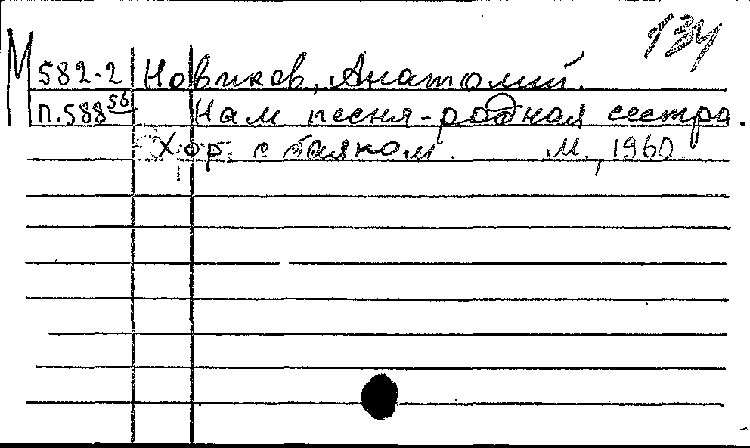 134
М 582-2 Новиков, Анатолий.
П.588 56 Нам песня-родная сестра.
Хор с баяном. М., 1960